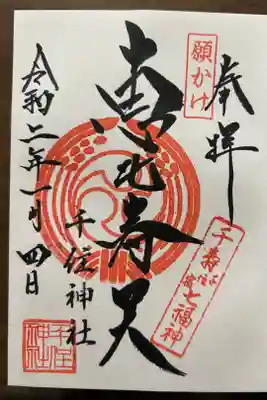 奉拝
願かけ
千寿七福神
恵比寿天
千住神社
令和二年一月四日
千住神社